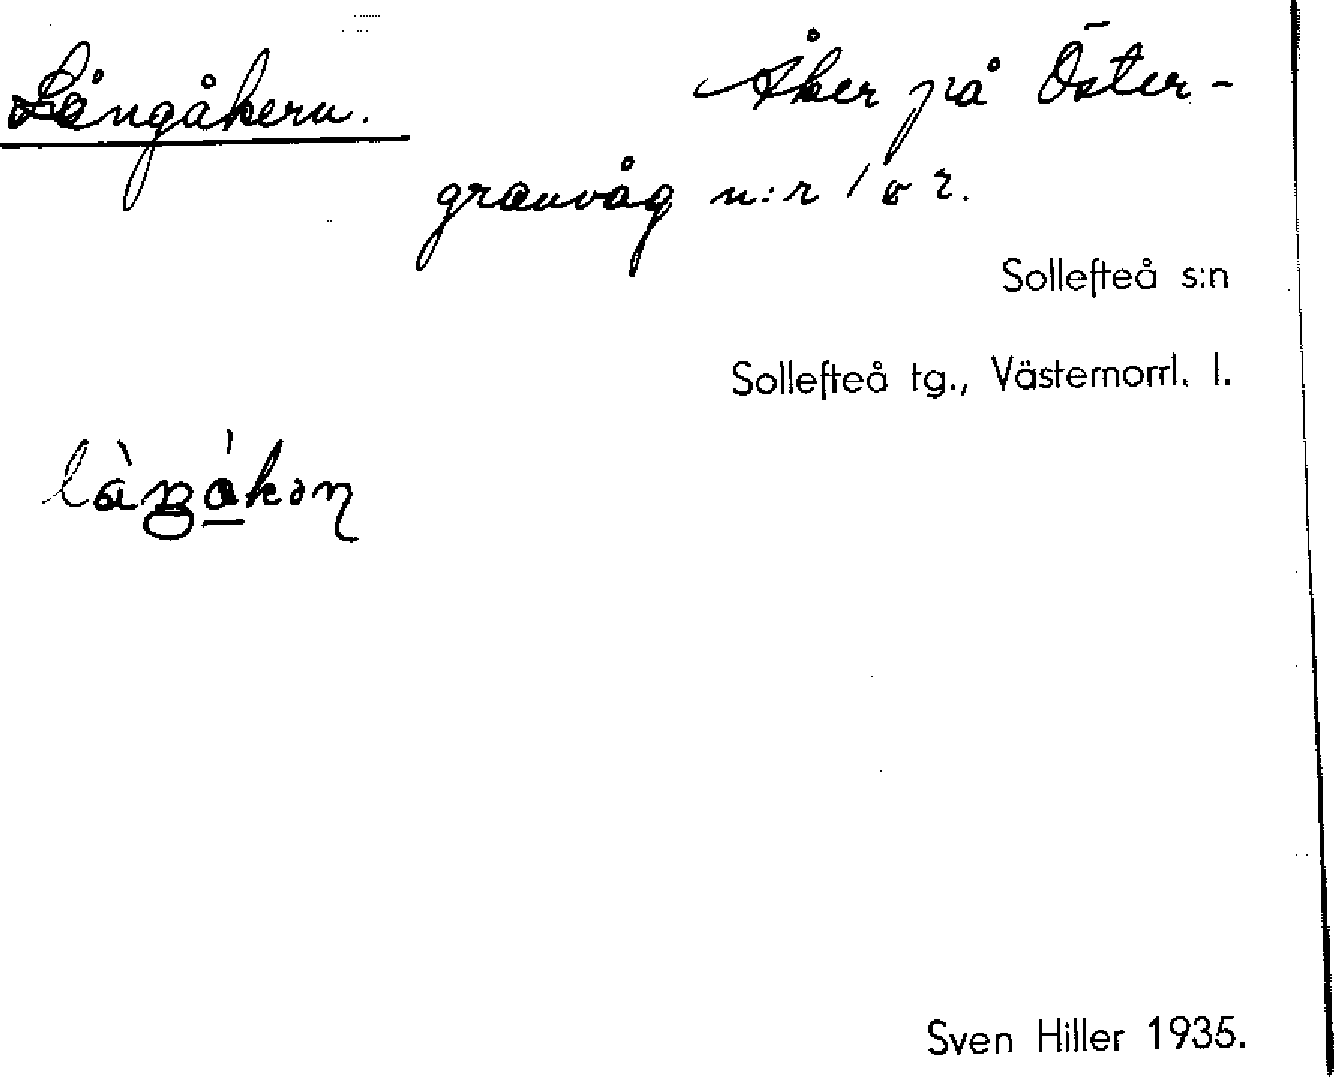 Långåkern. Åker på Öster-
granvåg n:r 1 o 2.
Sollefteå s:n
Sollefteå tg., Västernorrl. l.
Sven Hiller 1935.